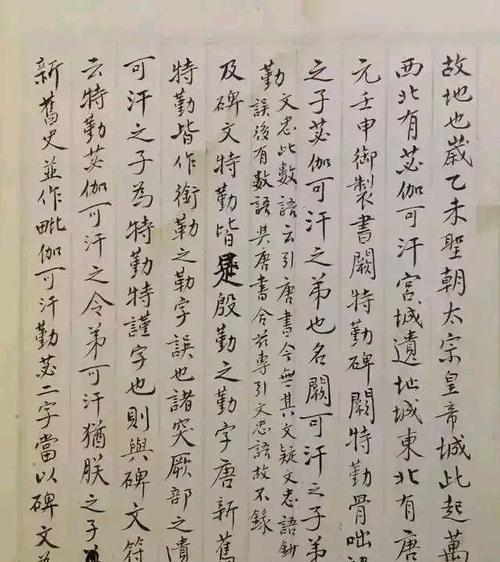 故地也歲乙未聖朝太宗皇帝城此起萬
西北有苾伽可汗宮城遺址城東北有唐
元壬申御製書闕特勤碑闕特勤骨咄
之子苾伽可汗之弟也名闕可汗之子弟
勤文忠此數語云引唐書今無其文疑文忠語鈔
誤後有數語與唐書合茲專引文忠語故不錄
及碑文特勤皆是殷勤之勤字唐新舊
特勤皆作銜勒之勒字誤也諸突厥部之遺
可汗之子為特勤特謹字也則與碑文符
云特勤苾伽可汗之令弟可汗猶朕之子
新舊史並作毗伽可汗勤苾二字當以碑文